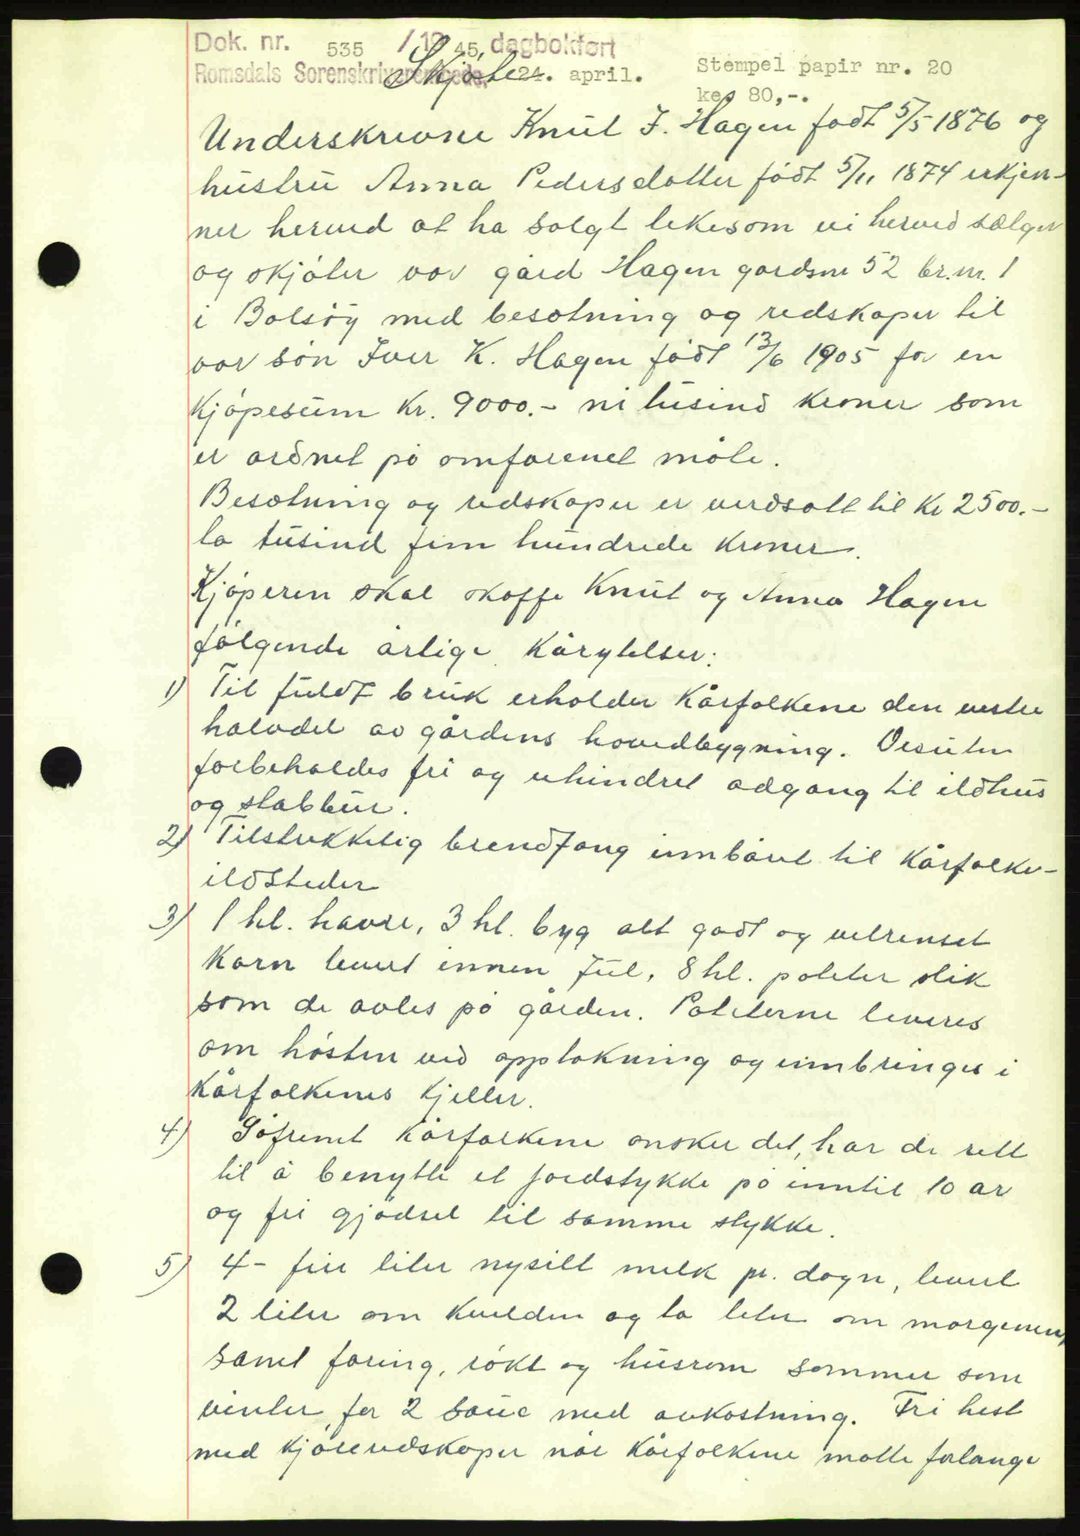 Dok. nr. 535 / 19 45, dagbokført
Romsdals Sorenskriverembede, 24. april.
Stempel papir nr. 20
kr 80,-.
Skjøte
Underskrevne Knut I. Hagen født 5/5 1876 og
hustru Anna Pedersdatter født 5/11 1874 erkjen-
ner herved at ha solgt likesom vi herved sælger
og skjøter vor gård Hagen gardsnr 52 br.nr. 1
i Bolsøy med besetning og redskaper til
vor søn Iver K. Hagen født 13/6 1905 for en
kjøpesum kr. 9000.- ni tusind kroner som
er ordnet på omforenet måte.
Besetning og redskaper er verdsatt til kr 2500.-
to tusind fem hundrede kroner.
Kjøperen skal skaffe Knut og Anna Hagen
følgende årlige kårytelser:
1) Til fuldt bruk erholder kårfolkene den vestre
halvdel av gårdens hovedbygning. Desuten
forbeholdes fri og uhindret adgang til ildhus
og stabbur.
2) Tilstrekkelig brendfang innbåret til kårfolke-
ildsteder
3) 1 hl. havre, 3 hl. byg alt godt og velrenset
korn levert innen jul, 8 hl. poteter slik
som de avles på gården. Poteterne leveres
om høsten ved opptakning og innbringes i
kårfolkenes kjeller.
4) Såfremt kårfolkene ønsker det, har de rett
til å benytte et jordstykke på inntil 10 ar
og fri gjødsel til samme stykke.
5) 4 - fire liter nysilt melk pr. døgn, levert
2 liter om kvelden og to liter om morgenen,
samt foring, røkt og husrom sommer som
vinter for 2 saue med avkastning. Fri hest
med kjøreredskaper når kårfolkene måtte forlange